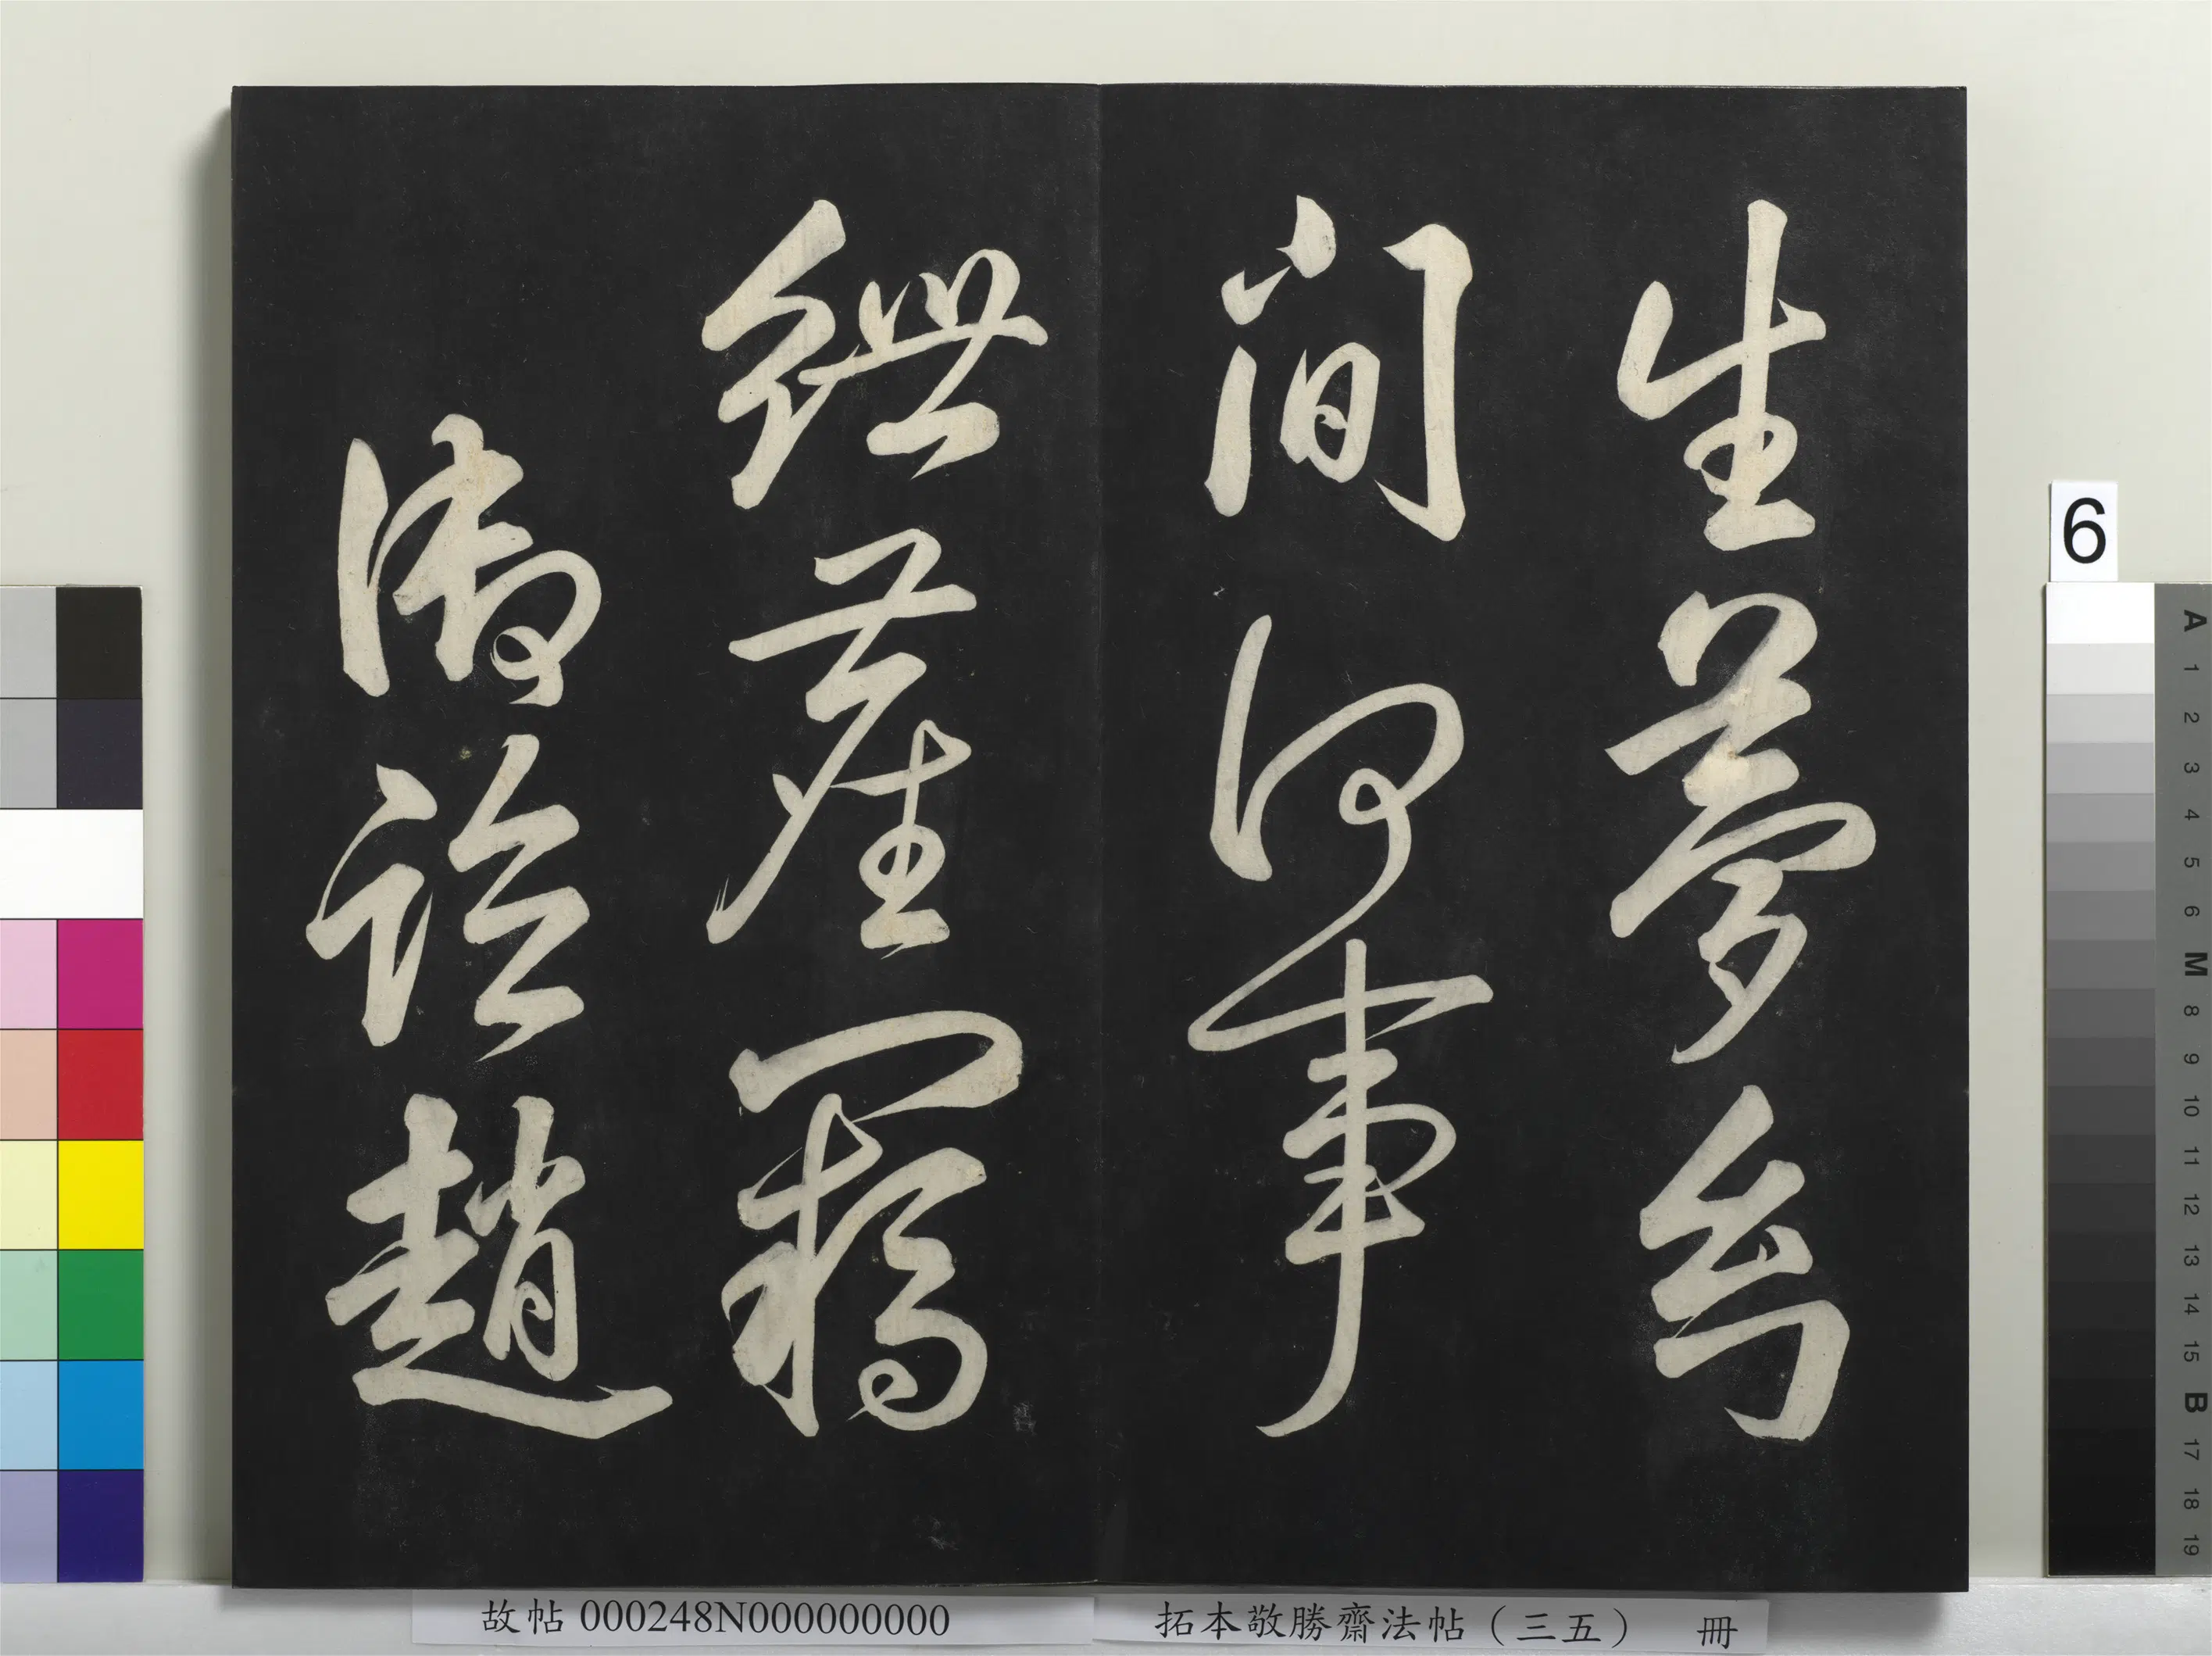 生夢幻
間何事
紲塵羈
趙
6
A 1 2 3 4 5 6 M 8 9 10 11 12 13 14 15 B 17 18 19
故帖 000248N000000000
拓本敬勝齋法帖（三五） 冊